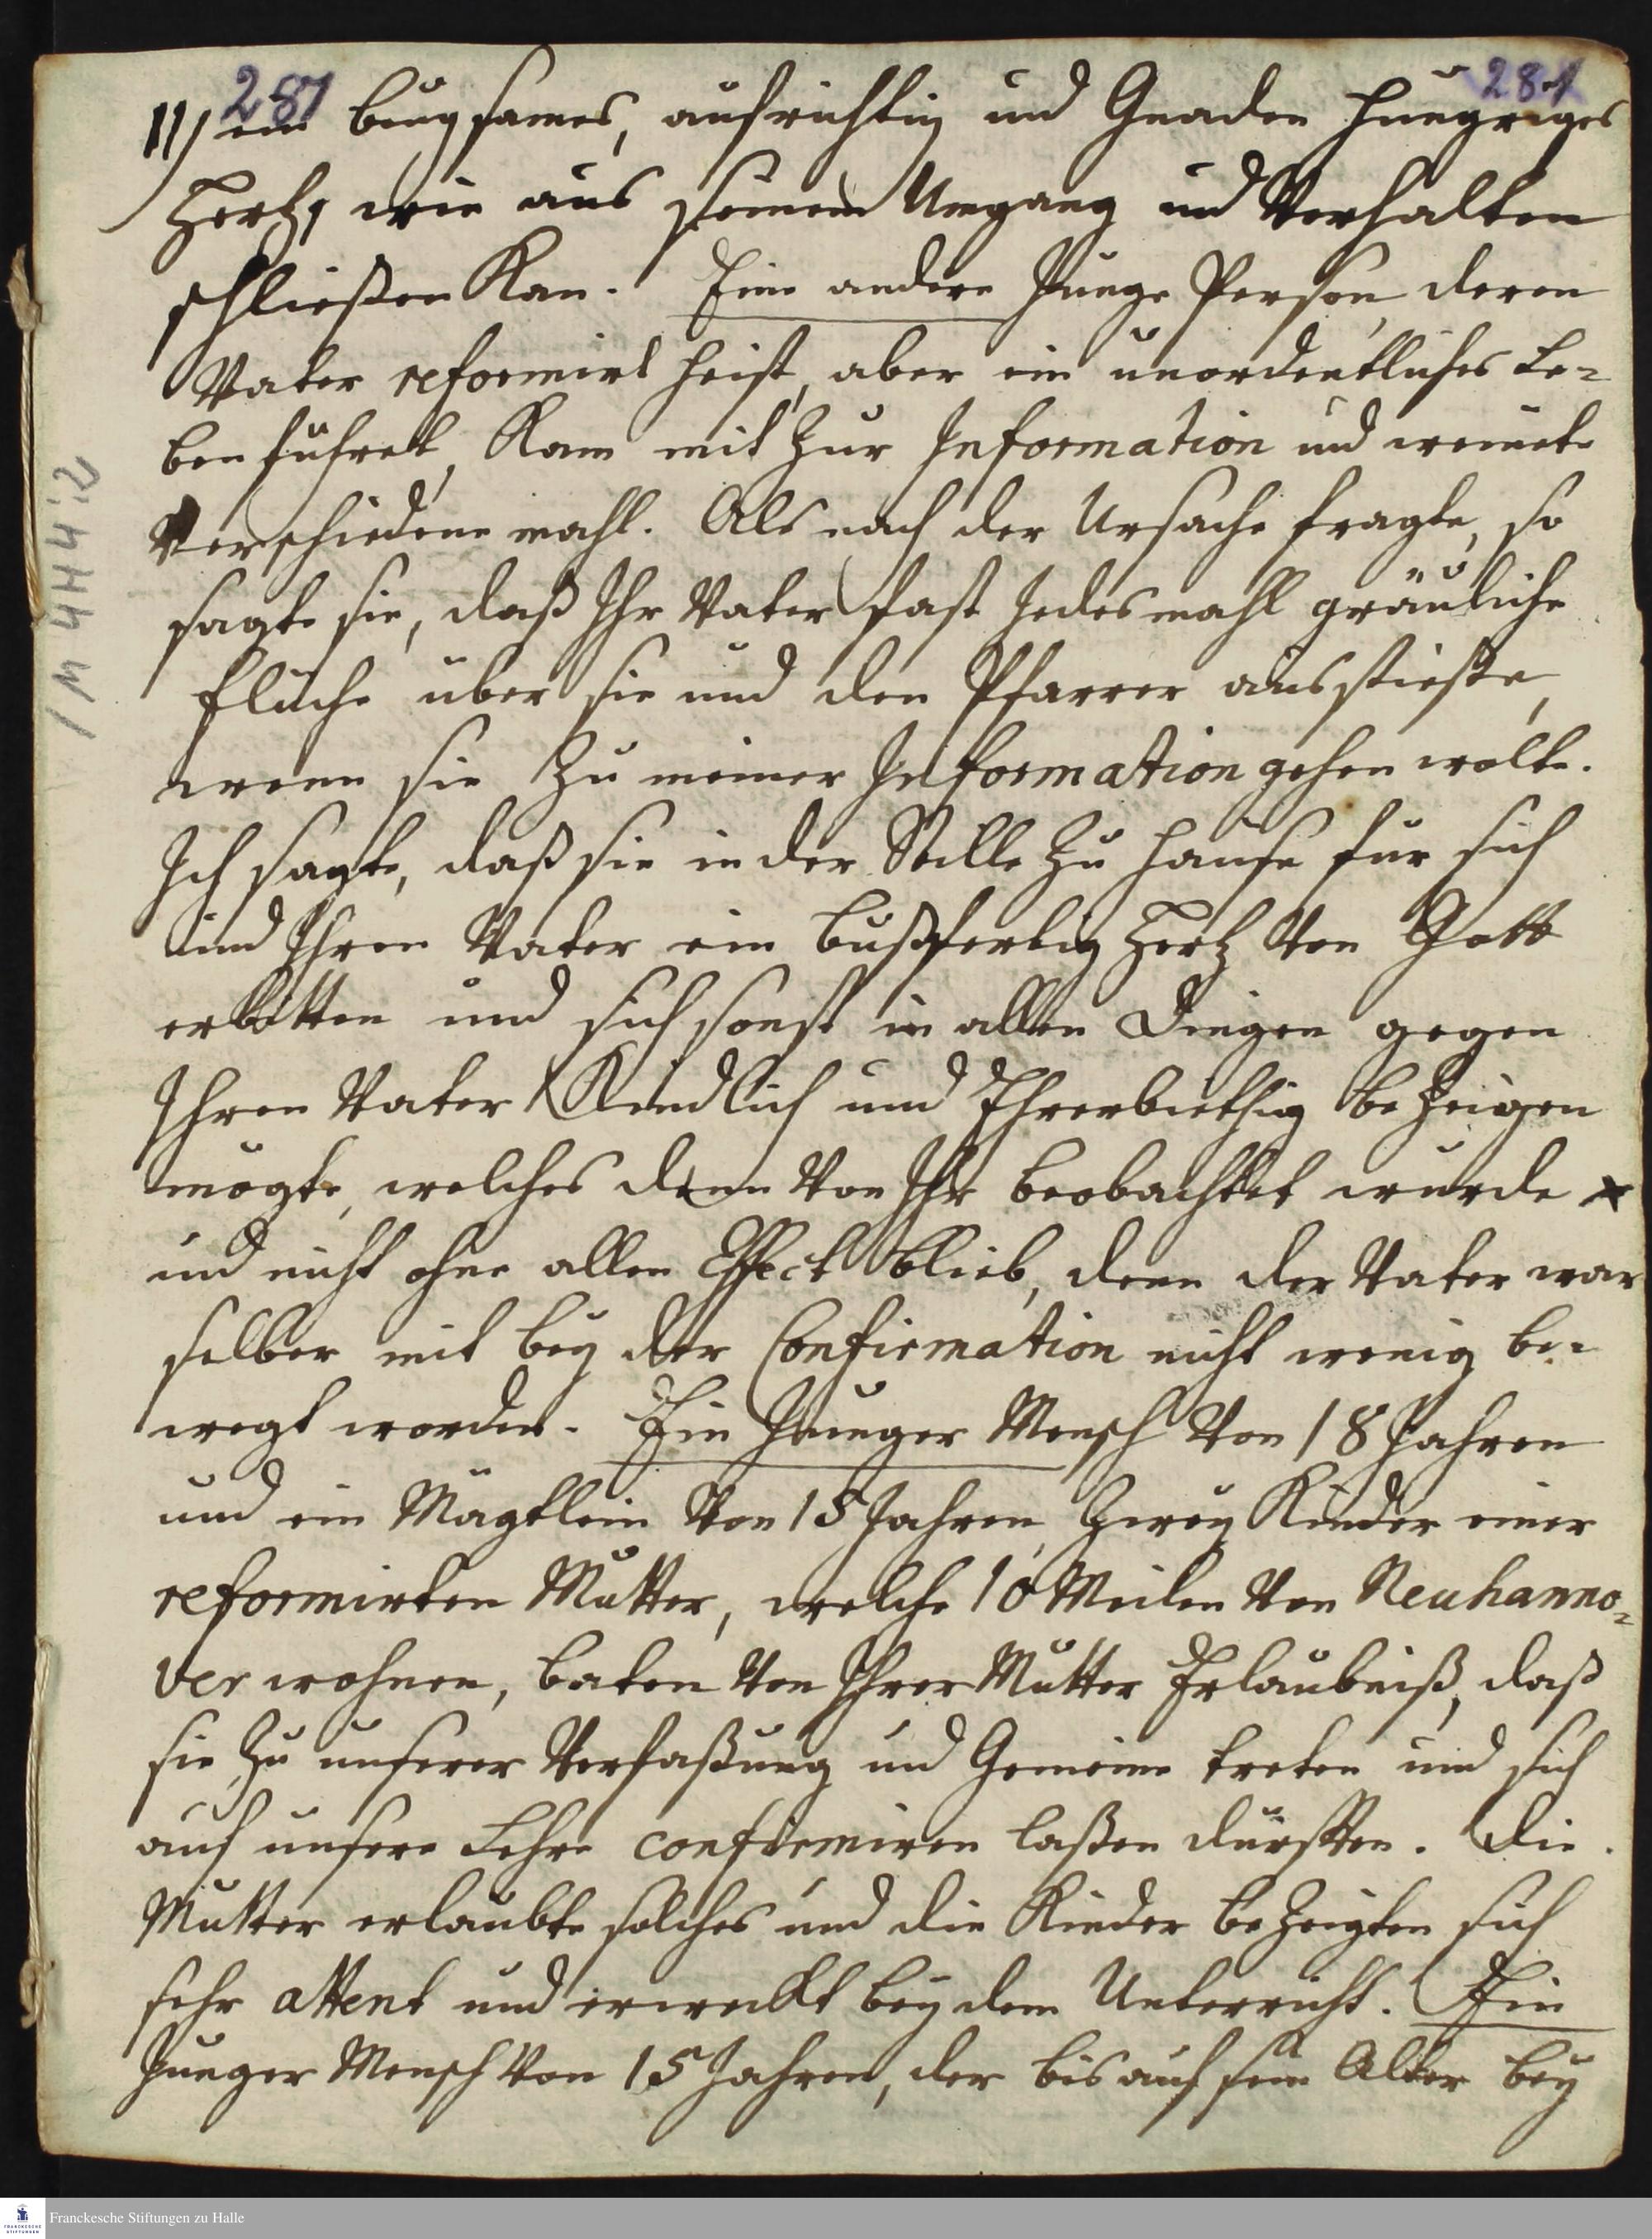 287 281
11) ein beugsames, aufrichtig und Gnaden hungriges
Hertz, wie aus seinem Umgang und Verhalten
schließen Kan. Eine andere junge Person, deren
Vater reformirt heist, aber ein unordentliches Le-
ben führet, Kam mit zur Information und weinete
verschiedene mahl. Als nach der Ursache fragte, so
sagte sie, daß Ihr Vater fast jedes mahl gräuliche
flüche über sie und den Pfarrer ausstieße,
wenn sie zu meiner Information gehen wolte.
Ich sagte, daß sie in der Stille zu Hause für sich
und Ihren Vater ein bußfertig Hertz von Gott
erbitten und sich sonst in allen Dingen gegen
Ihren Vater Kindlich und Ehrerbiethig bezeigen
mögte, welches denn von Ihr beobachtet wurde
und nicht ohne allen Effect blieb, denn der Vater war
selber mit bey der Confirmation nicht wenig be-
wegt worden. Ein junger Mensch von 18 Jahren
und ein Mägtlein von 15 Jahren, zwey Kinder einer
reformirten Mutter, welche 10 Meilen von Neuhanno-
ver wohnen, baten von Ihrer Mutter Erlaubniß, daß
sie zu unserer Verfaßung und Gemeine treten und sich
auf unsere Lehre confirmiren laßen dürfften. Die
Mutter erlaubte solches und die Kinder bezeigten sich
sehr attent und erweckt bey dem Unterricht. Ein
junger Mensch von 15 Jahren, der bis auf sein Alter bey
/ M 4 H 4:2
Franckesche Stiftungen zu Halle